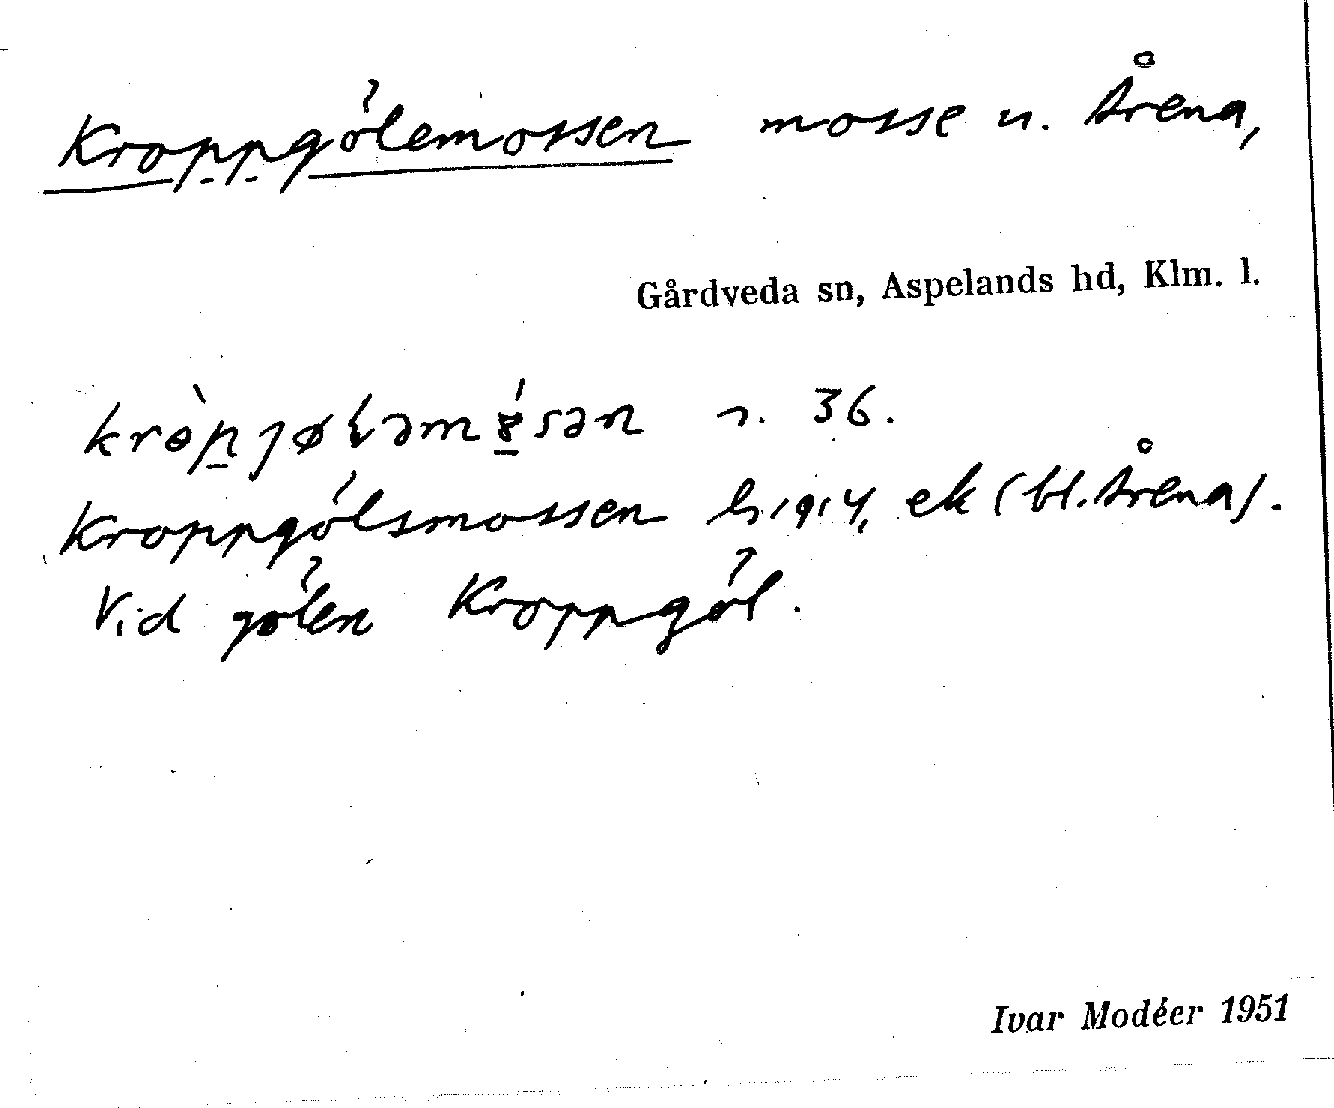 Kroppgölemossen mosse u. Årena,
Gårdveda sn, Aspelands hd, Klm. l.
36.
Kroppgölsmossen h, 1914, ek (bl. Årena).
Vid gölen Kroppgöl.
Ivar Modéer 1951